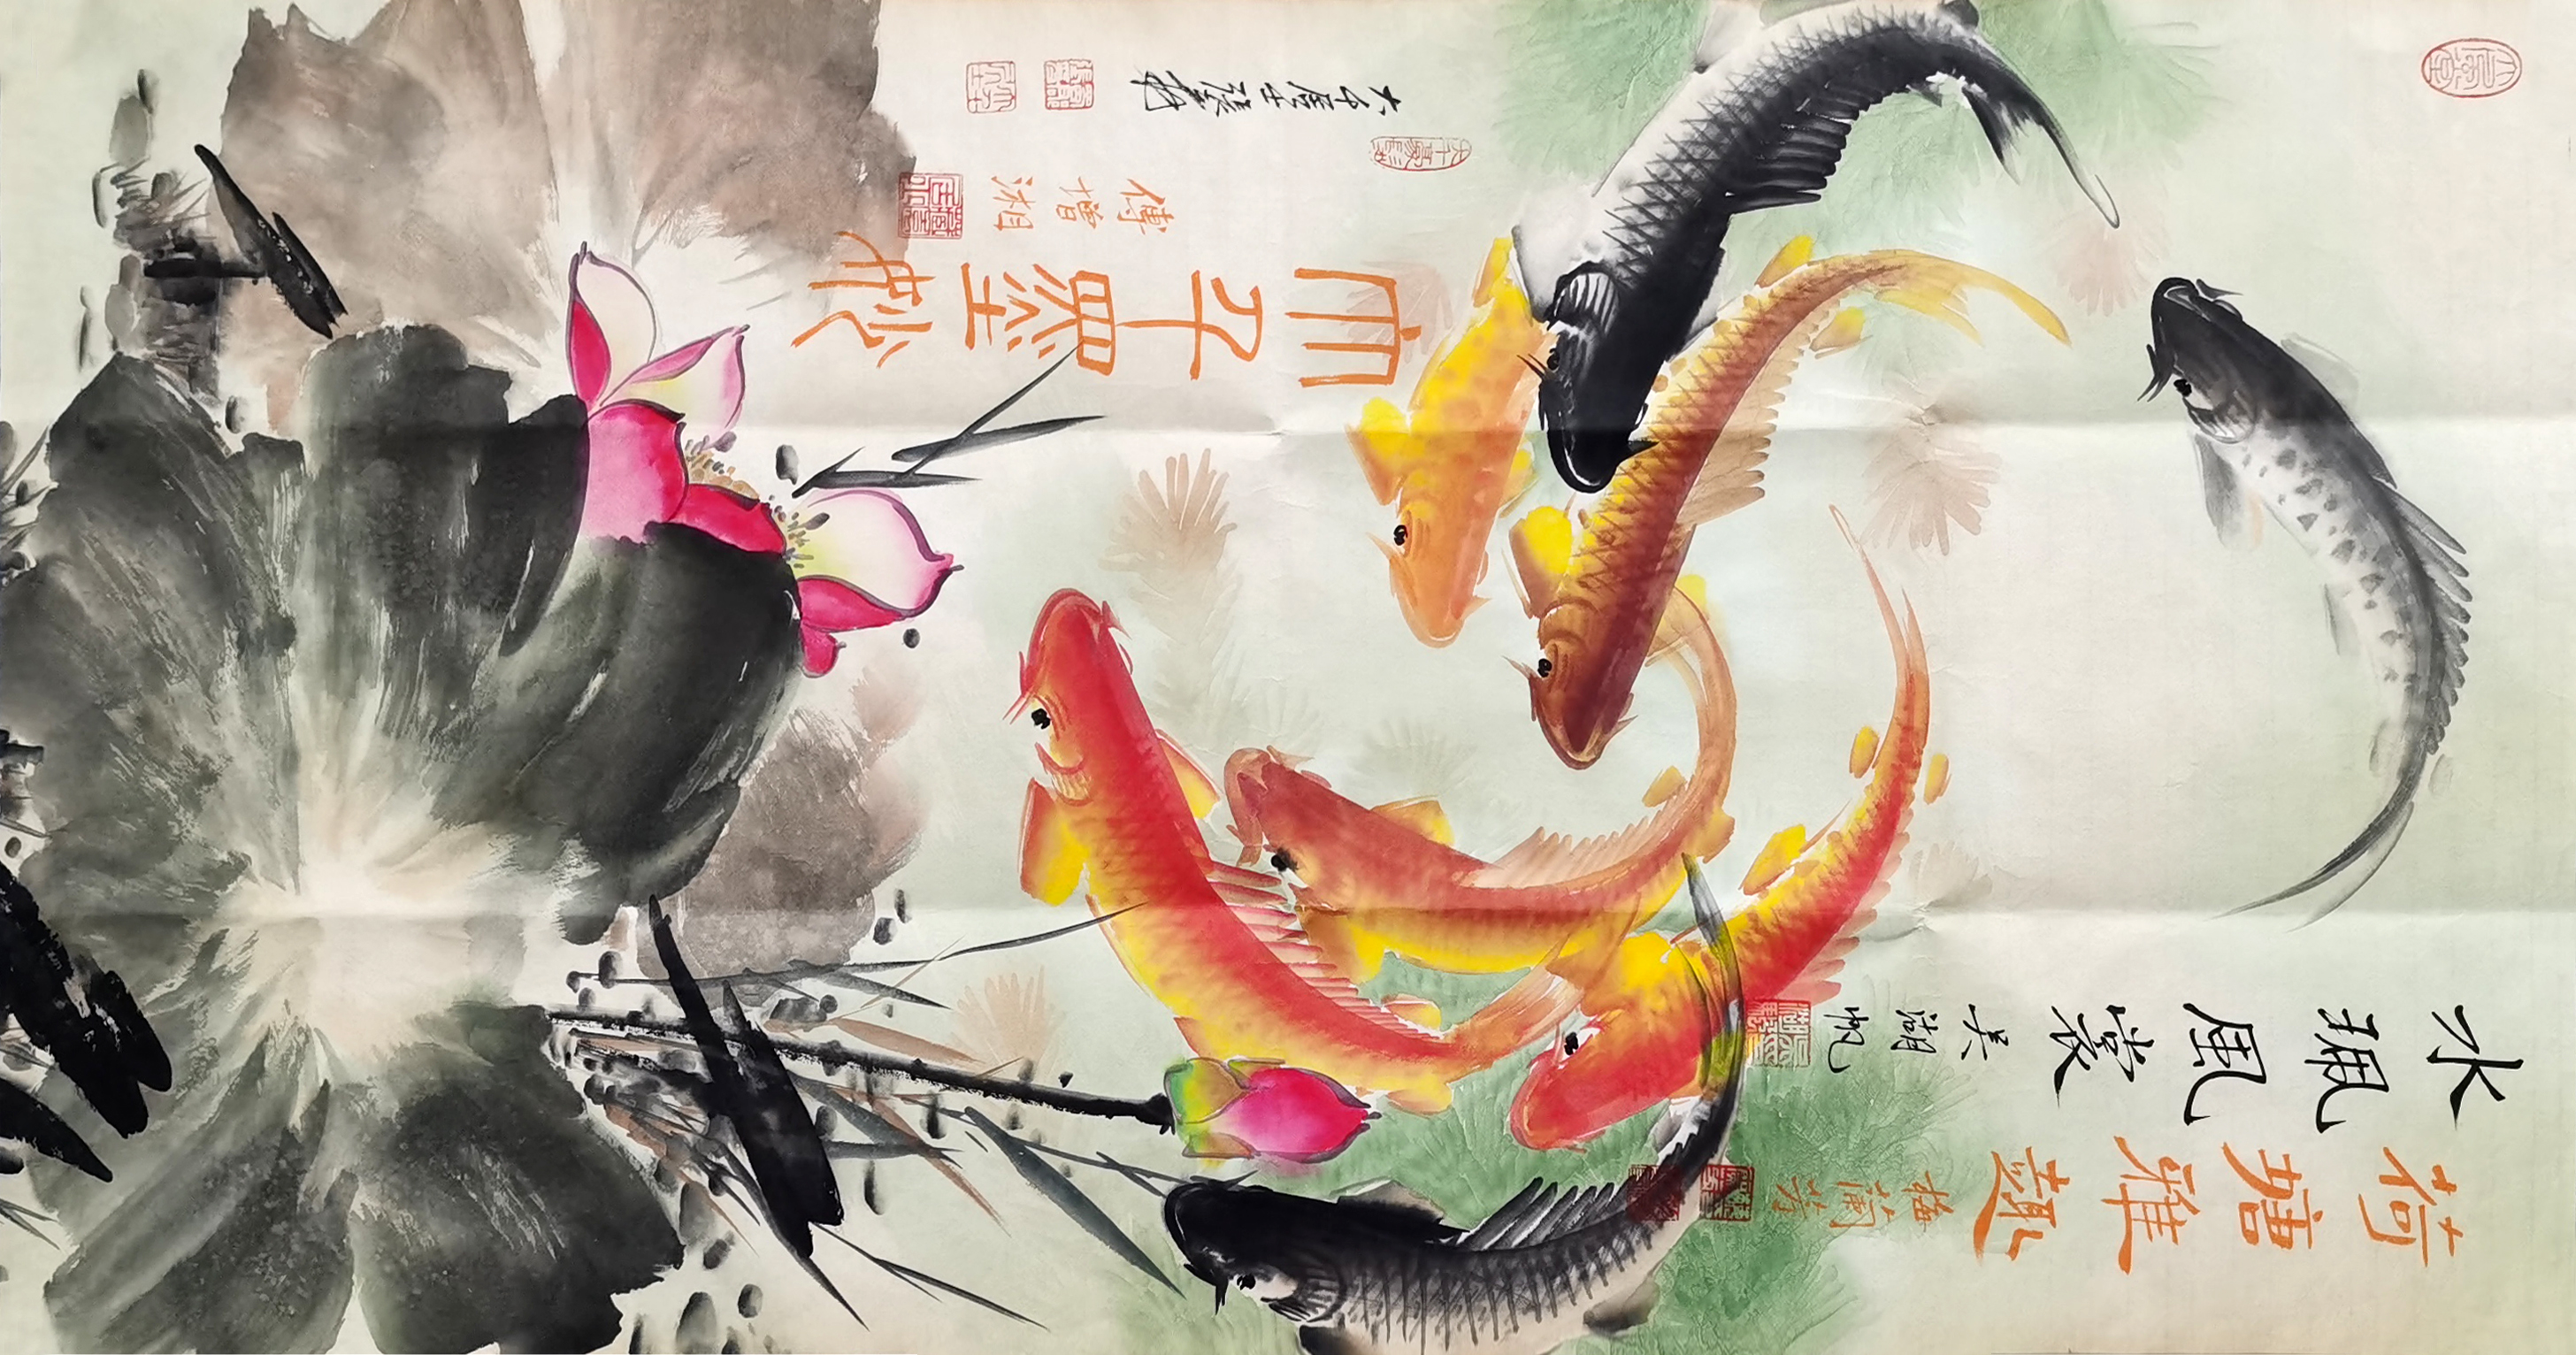 荷塘雅趣
梅蘭芳
水珮風裳
吴湖帆
大千墨妙
傅增湘
大千居士張爰